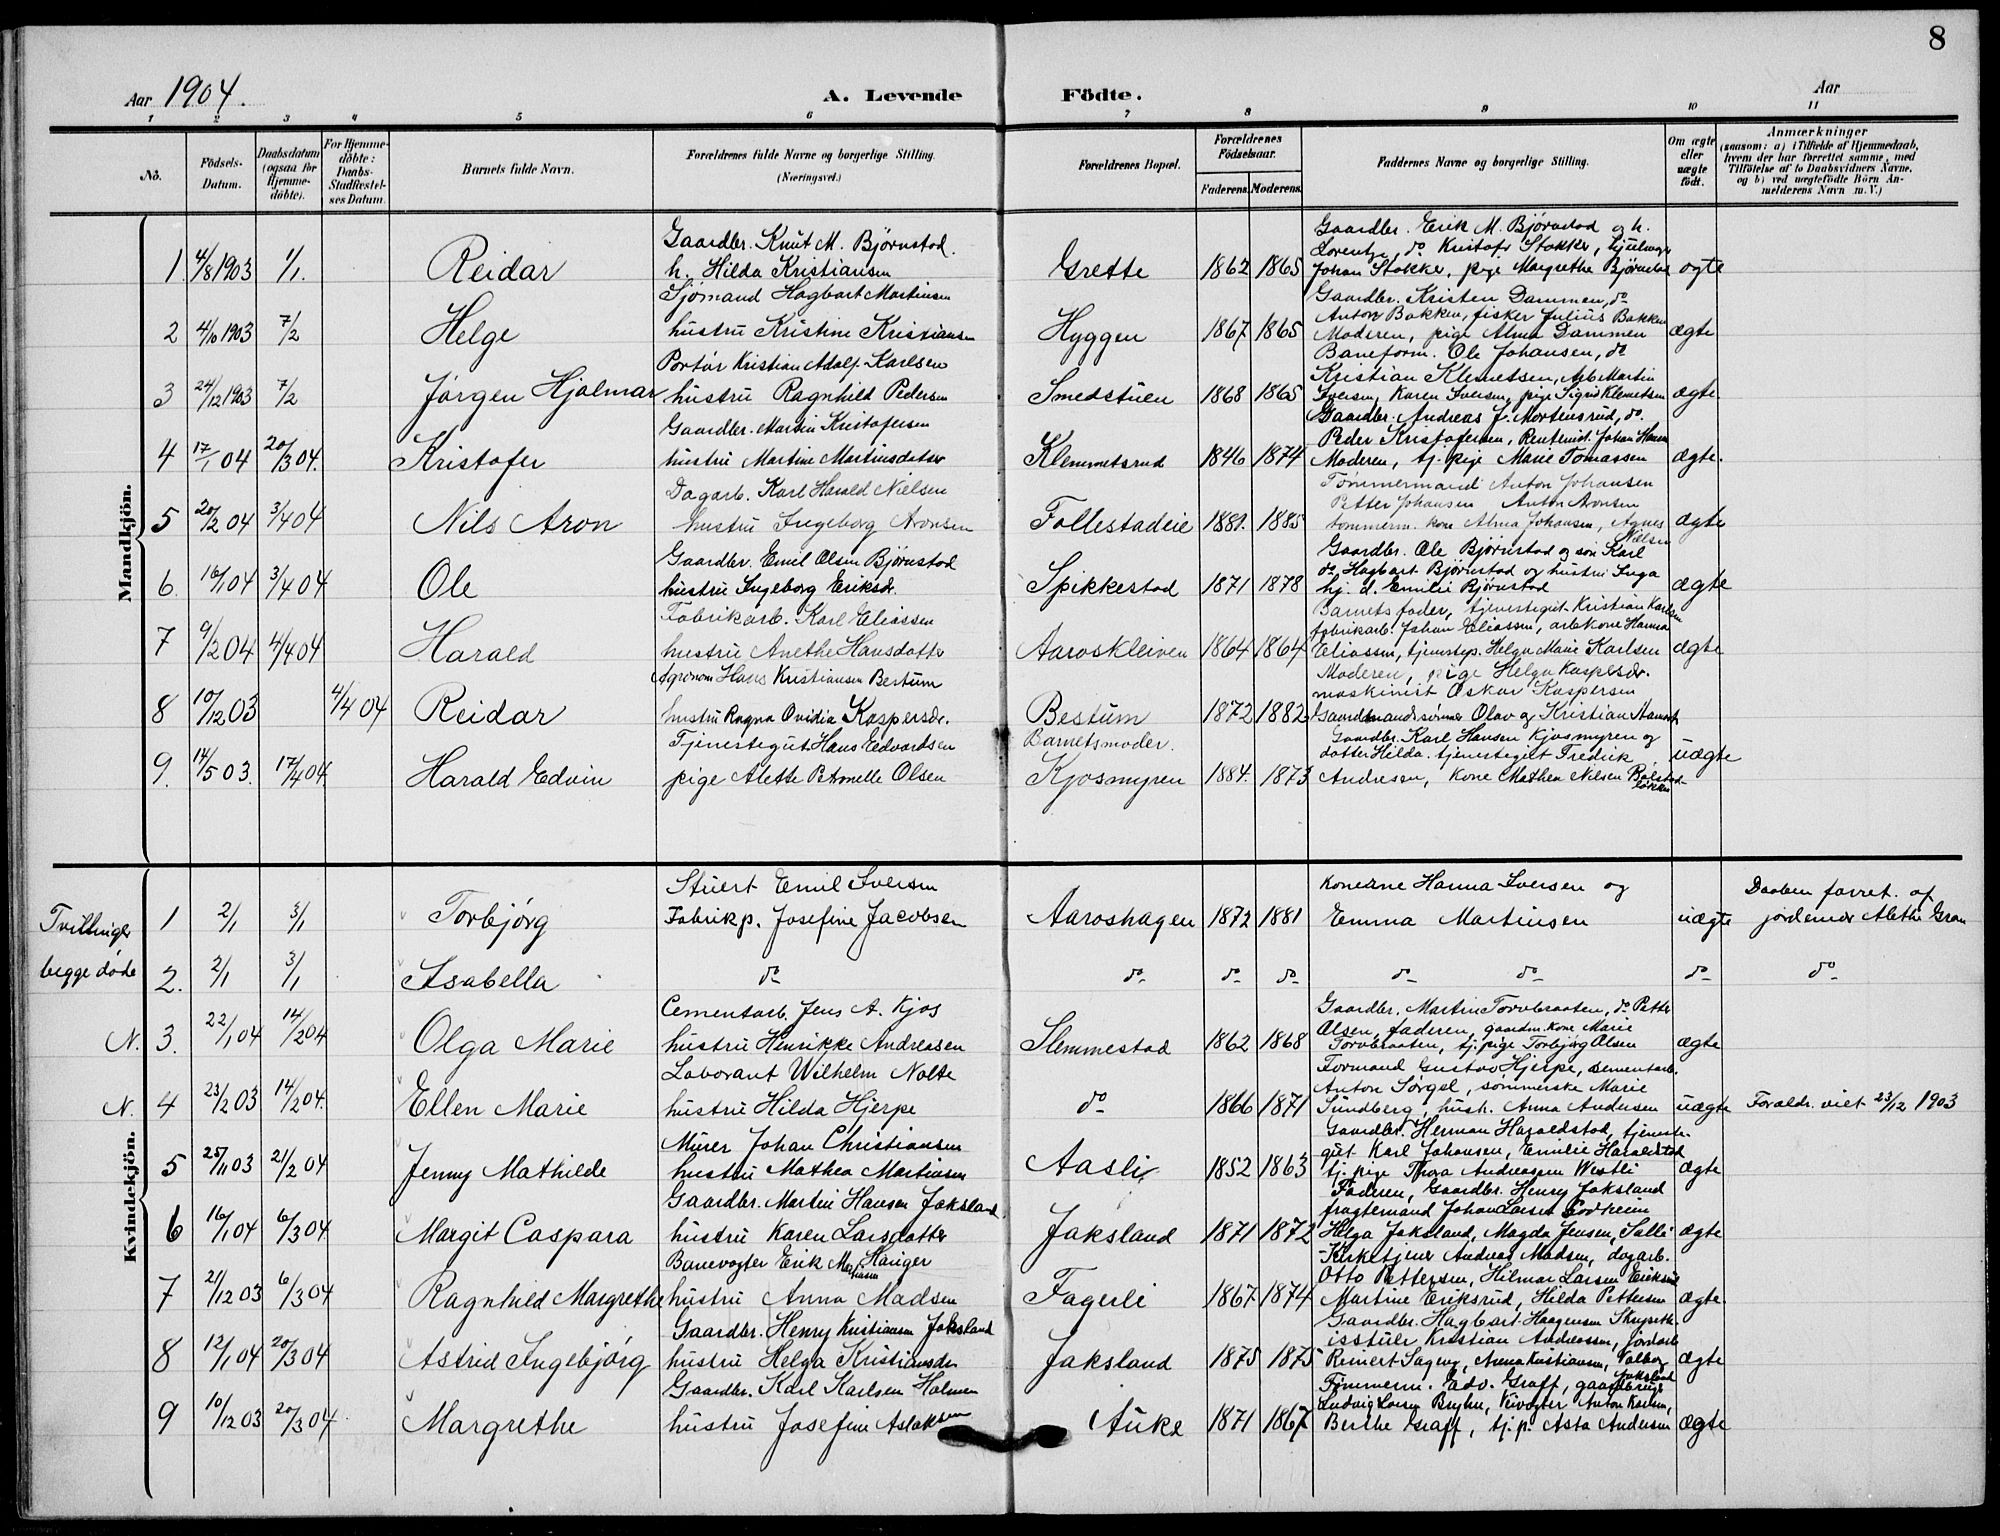 8
Aar 1904.
A. Levende Födte.
Aar
1 2 3 4 5 6 7 8 9 10 11
No.
Födsels-Datum.
Daabsdatum (ogsaa for Hjemme-döbte).
For Hjemme-döbte: Daabs-Stadfæstel-ses Datum.
Barnets fulde Navn.
Forældrenes fulde Navne og borgerlige Stilling. (Næringsvei.)
Forældrenes Bopæl.
Forældrenes Födselsaar.
Faderens. Moderens.
Faddernes Navne og borgerlige Stilling.
Om ægte eller uægte födt.
Anmærkninger
(saasom: a) i Tilfælde af Hjemmedaab, hvem der har forrettet samme, med Tilföielse af to Daabsvidners Navne, og b) ved uægtefödte Börn An-melderens Navn m. V.)
Mandkjön.
Gaardbr. Knut M. Bjørnstad.
Gaardbr. Erik M. Bjørnstad og h.
Lorentze, do Kristofr Stokker,
1. 4/8 1903 1/1. Reidar h. Hilda Kristiansen Grette 1862 1865 Johan Stokker, pige Margrethe Bjørnstad ægte
Sjømand Hagbart Martinsen
Gaardbr. Kristen Dammen, do
Anton Bakken, fisker Julius Bakken
2 4/10 1903 7/2 Helge hustru Kristine Kristiansen Hyggen 1867 1865 Moderen, pige Alma Dammen ægte
Portør Kristian Adolf Karlsen
Baneform. Ole Johansen, do
Kristian Klemetsen, Arb. Martin
3 24/12 1903 7/2 Jørgen Hjalmar hustru Ragnhild Pedersen Smedstuen 1868 1865 Iversen, Karen Iversen, pige Sigrid Klemetsen ægte.
Gaardbr. Martin Kristofersen
Gaardbr. Andreas J. Mortensrud, do.
Peder Kristofersen, Rentenist. Johan Hansen
4 17/1 04 20/3 04. Kristofer hustru Martine Martinsdatter Klemmetsrud 1846 1874 Moderen, tj. pige Marie Tomassen ægte.
Dagarb. Karl Harald Nielsen
Tømmermand Anton Johansen
Petter Johansen Anton Aronsen
5 20/2 04 3/4 04 Nils Aron hustru Ingeborg Aronsen Follestadeie 1881. 1885 tømmerm. kone Alma Johansen, Agnes Nielsen ægte
Gaardbr. Emil Olsen Bjørnstad
Gaardbr. Ole Bjørnstad og søn Karl
do Hagbart Bjørnstad og hustru Inga
6. 16/1 04 3/4 04 Ole hustru Ingeborg Eriksdr. Spikkestad 1871 1878 hj. d. Emilie Bjørnstad ægte
Fabrikarb. Karl Eliassen
Barnets fader, tjenestegut Kristian Karlsen
fabrikarb. Johan Eliassen, arb kone Hanna
7 9/2 04 4/4 04 Harald hustru Anethe Hansdatter Aaroskleiven 1864 1864 Eliassen, tjenestep. Helga Marie Karlsen ægte
Agronom Hans Kristiansen Bertum
Moderen, pige Helga Kaspersdr.
maskinist Oskar Kaspersen
8 10/12 03 4/4 04 Reidar hustru Ragna Ovidia Kaspersdr. Bestum 1872 1882 Gaardmandssønner Olav og Kristian
Tjenestegut Hans Edvardsen
Barnetsmoder.
Gaardbr. Karl Hansen Kjosmyren og
datter Hilda, tjenestegut Fredrik
9. 14/5 03. 17/4 04. Harald Edvin pige Alette Petronelle Olsen Kjosmyren 1884. 1873 Andresen, kone Mathea Nilsen uægte
Kvindekjön.
Tvillinger
begge døde
Stuert Emil Iversen
konerne Hanna Iversen og
Daaben forret. af
1 2/1 3/1 Torbjørg Fabrikp. Josefine Jacobsen Aaroshagen 1872 1881 Emma Martinsen uægte jordemor Alethe Gran
2. 2/1 3/1 Isabella do do do do do do do do
Cementarb. Jens A. Kjos
Gaardbr. Martin Torvbraaten, do Petter
Olsen, faderen, gaardm. kone Marie
N. 3. 22/1 04 14/2 04 Olga Marie hustru Henrikke Andreasen Slemmestad 1862 1868 Torvbraaten, tj. pige Torbjørg Olsen ægte
Laborant Wilhelm Nolte
Formand Gustav Hjerpe, sementarb.
Anton Sørgel, sømmerske Marie
N. 4 23/2 03 14/2 04. Ellen Marie hustru Hilda Hjerpe do 1866 1871 Sundberg, hust. Anna Andersen uægte Foraldr. viet 23/12 1903
Murer Johan Christiansen
Gaardbr. Herman Haraldstad, tjeneste-
gut Karl Johansen, Emilie Haraldstad
5 25/11 03 21/2 04 Jenny Mathilde hustru Mathea Martinsen Aasli 1852 1863 tj. pige Thora Andreasen Westli ægte
Gaardbr. Martin Hansen Jaksland
Faderen, Gaardbr. Henry Jaksland
fragtemand Johan Larsen Godheim
6 16/1 04 6/3 04 Margit Caspara hustru Karen Larsdatter Jaksland 1871 1872 Helga Jaksland, Magda Jensen, Salli ægte
Banevogter Erik Hauger
Kirketjener Andreas Madsen, dagarb.
Otto Pettersen, Hilmar Larsen Eriksrud
7 21/12 03 6/3 04 Ragnhild Margrethe hustru Anna Madsen Fagerli 1867 1874 Martine Eriksrud, Hilda Pettersen ægte.
Gaardbr. Henry Kristiansen Jaksland
Gaardbr. Hagbart Haagensen
Kristian Andreassen, jordarb
8 12/1 04 20/3 04 Astrid Ingebjørg hustru Helga Kristiansdr Jaksland 1875 1875 Reinert Sageng, Anna Kristiansen, Valborg Jaksland ægte
Gaardbr. Karl Karlsen Holmen
Tømmerm. Edv. Graff, gaardbruger
Ludvig Larsen Veivogter Anton Karlsen,
9 10/12 03 20/3 04 Margrethe hustru Josefine Aslaksen Auke 1871 1867 Berthe Graff, tj. p. Asta Andersen ægte